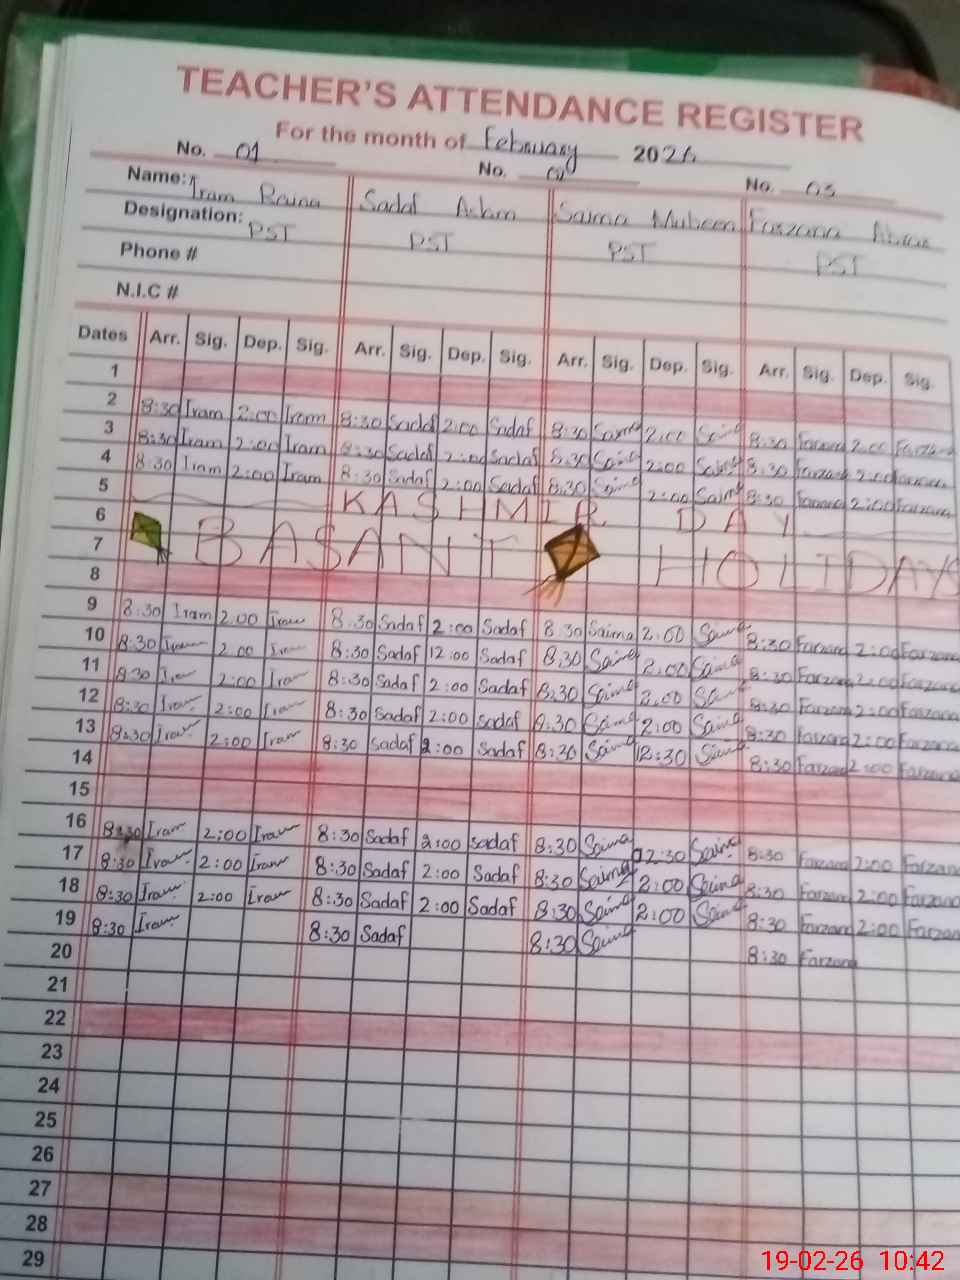 TEACHER'S ATTENDANCE REGISTER
For the month of February 2026
No. 01 No. No. 03
Name: Iram Sadaf Aslam Saima Mubeen Farzana
Designation: PST PST PST PST
Phone #
N.I.C #
Dates Arr. Sig. Dep. Sig. Arr. Sig. Dep. Sig. Arr. Sig. Dep. Sig. Arr. Sig. Dep. Sig.
1
2 8:30 Iram 2:00 Iram 8:30 Sadaf 2:00 Sadaf 8:30 Saima 2:00 Saima 8:30 Farzana 2:00 Farzana
3 8:30 Iram 2:00 Iram 8:30 Sadaf 2:00 Sadaf 8:30 Saima 2:00 Saima 8:30 Farzana 2:00 Farzana
4 8:30 Iram 2:00 Iram 8:30 Sadaf 2:00 Sadaf 8:30 Saima 2:00 Saima 8:30 Farzana 2:00 Farzana
5 KASHMIR DAY
6
BASANT HOLIDAYS
7
8
9 8:30 Iram 2:00 Iram 8:30 Sadaf 2:00 Sadaf 8:30 Saima 2:00 Saima 8:30 Farzana 2:00 Farzana
10 8:30 Iram 2:00 Iram 8:30 Sadaf 12:00 Sadaf 8:30 Saima 2:00 Saima 8:30 Farzana 2:00 Farzana
11 8:30 Iram 2:00 Iram 8:30 Sadaf 2:00 Sadaf 8:30 Saima 2:00 Saima 8:30 Farzana 2:00 Farzana
12 8:30 Iram 2:00 Iram 8:30 Sadaf 2:00 Sadaf 8:30 Saima 2:00 Saima 8:30 Farzana 2:00 Farzana
13 8:30 Iram 2:00 Iram 8:30 Sadaf 2:00 Sadaf 8:30 Saima 12:30 Saima 8:30 Farzana 2:00 Farzana
14
15
16 8:30 Iram 2:00 Iram 8:30 Sadaf 2:00 Sadaf 8:30 Saima 12:30 Saima 8:30 Farzana 2:00 Farzana
17 8:30 Iram 2:00 Iram 8:30 Sadaf 2:00 Sadaf 8:30 Saima 2:00 Saima 8:30 Farzana 2:00 Farzana
18 8:30 Iram 2:00 Iram 8:30 Sadaf 2:00 Sadaf 8:30 Saima 2:00 Saima 8:30 Farzana 2:00 Farzana
19 8:30 Iram 8:30 Sadaf 8:30 Saima 8:30 Farzana
20
21
22
23
24
25
26
27
28
29
19-02-26 10:42